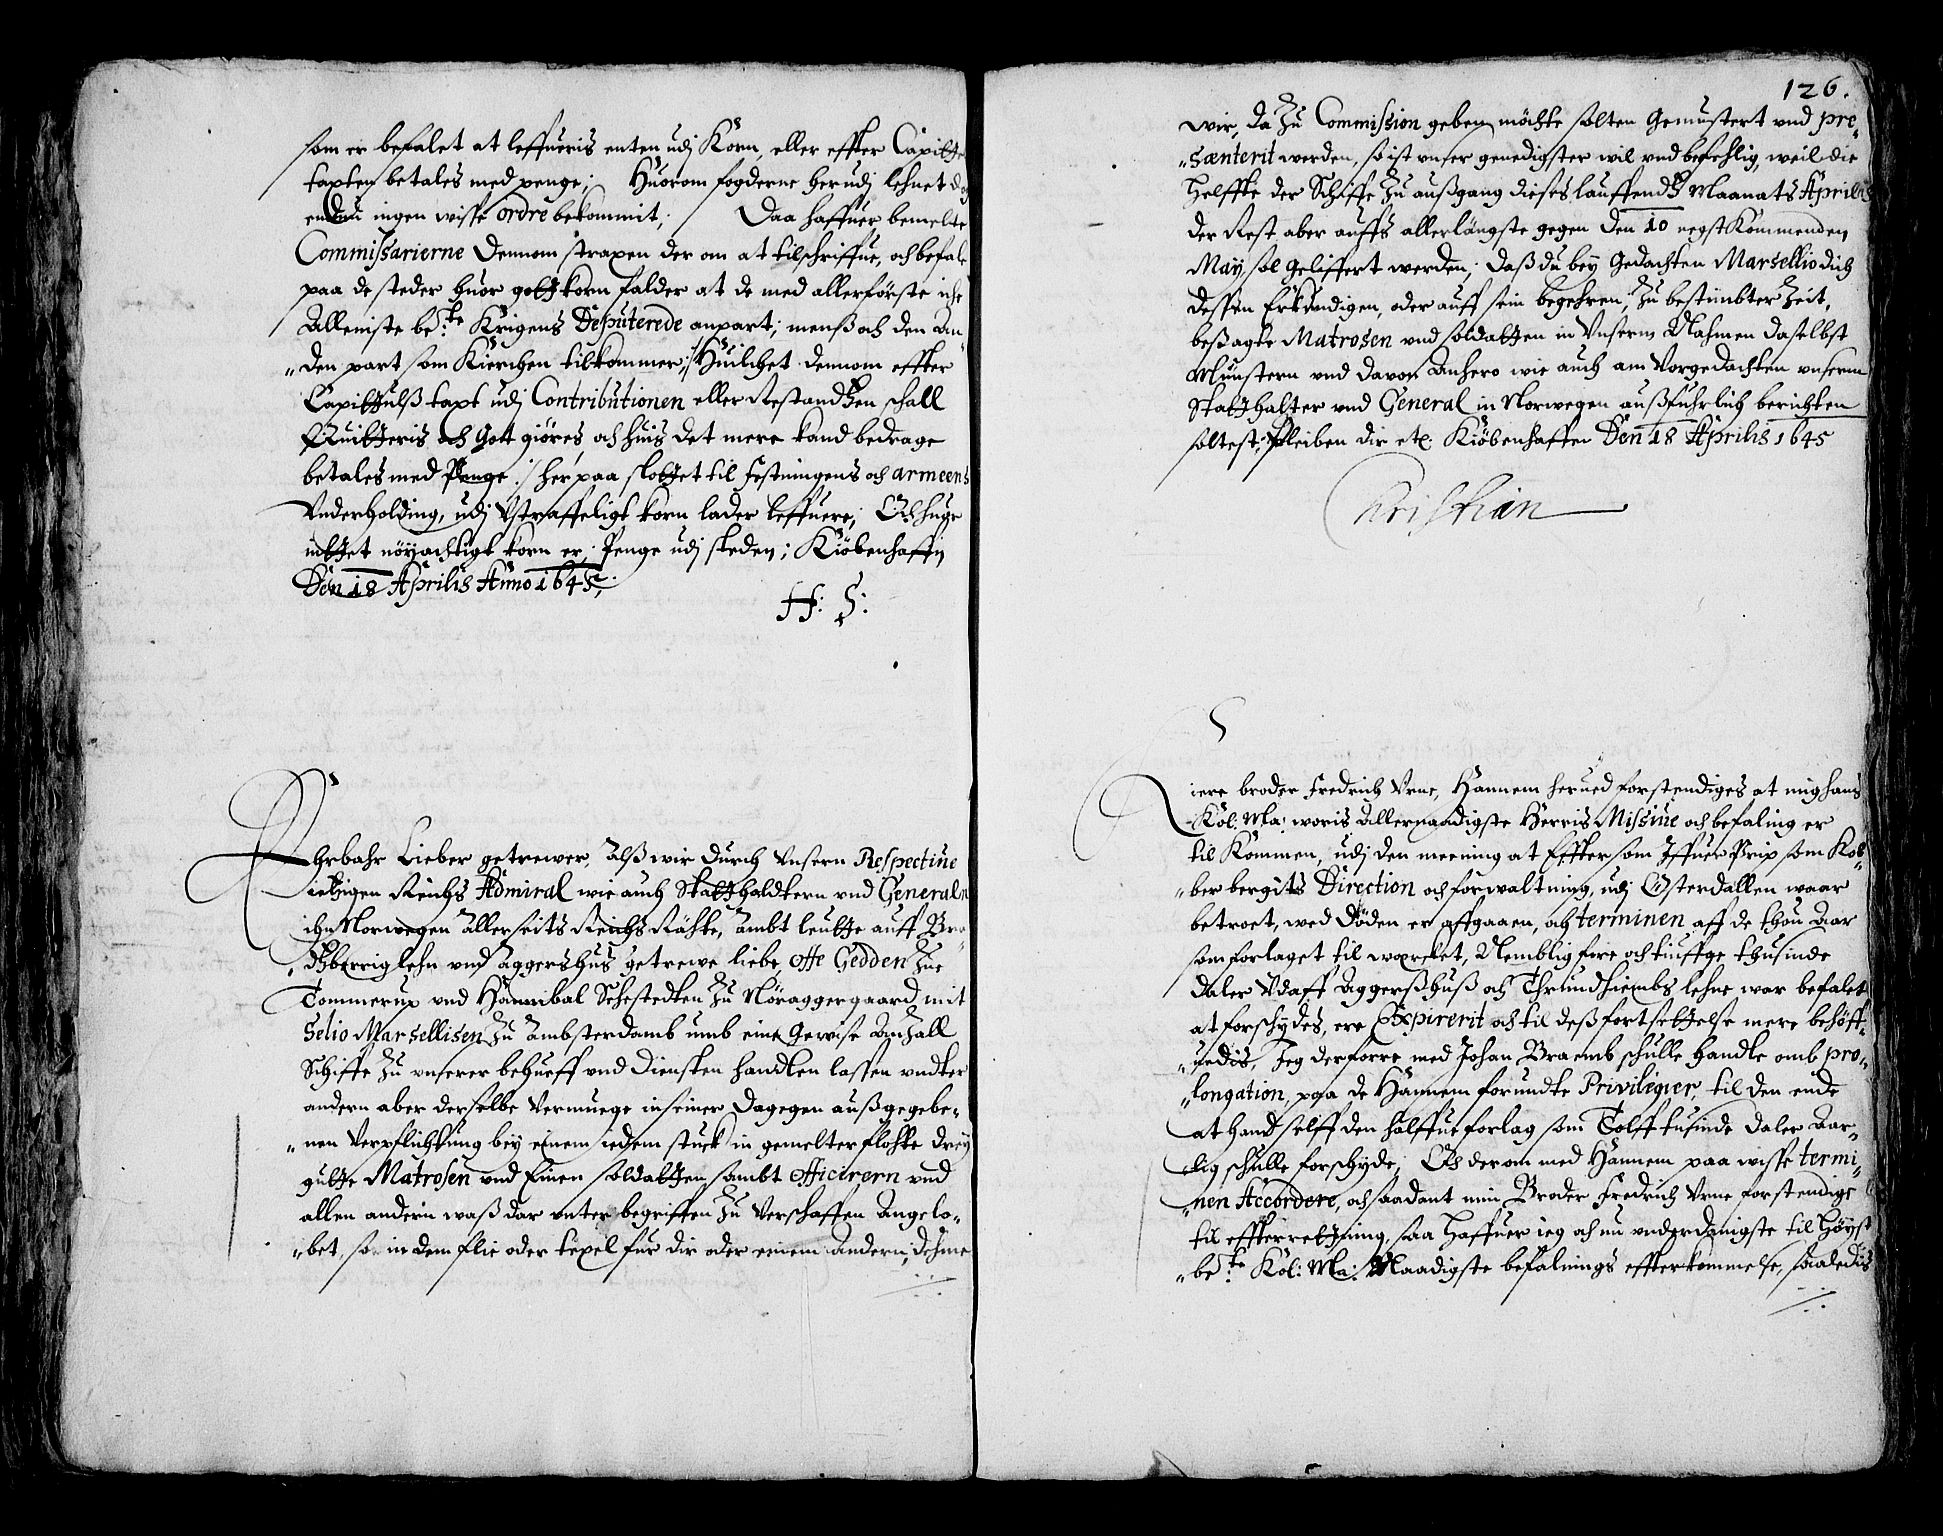 som er befalet at leffueris enten udj Korn, eller effter Capittels
taxten betales med penge; Huorom fogderne herudj lehnet dog
endnu ingen wisse ordre bekommit; Daa haffuer bemelte
Commissarierne dennom straxen der om at tilschriffue, och befale
paa de steder huor gott korn falder at de med allerförste iche
Alleniste be:te Krigens Deputerede anpart; menß och den An„
„den part som Kirchen tilkommer; :/ Huilchet dennom effter
Capittulß taxt udj Contributionen eller Restandtzen schall
Quitteris och Gott giöres, och huis det mere kand bedrage
betales med Penge :/ her paa slottet til festningens och armeens
Vnderholding, udj Vstraffeligt korn lader leffuere; Och huor
indtet nöyachtigt korn er, Penge udj steden; Kiöbenhaffn
Den 18 Aprilis Anno 1645.
H: S:
Ehrbahr Lieber getrewer, Alß wir durch Unsern Respective
ietzigen Reichs Admiral, wie auch Statthaldtern und Generaln
ihn Norwegen Allerseits Reichs Rähte, Ambt leutte auff Bra„
„dtzberrig lehn und Aggershus getrewe liebe, Offe Gedden zue
Tommerup und Hannibal Sehestedten zu Nöraggergaard mit
Selio Marsellisen zu Ambsterdamb umb eine Gewise Anzall
Schiffe zu unserer behueff und Diensten handlen lassen undter
andern aber derselbe Vermuege in seiner dagegen außgegebe„
„nen Verpflichtung bey einem iedem stuck in gemelter flohte drey
gutte Matrosen und Einen soldatten sambt Officirern und
allen andern waß dar unter begriffen zu Verschaffen Angelo„
„bet, so in dem flie oder texel fur dir oder einem Andern, dehme
126.
wir, da zu Commission geben möchte solten Gemustert und pre„
„sænterit werden, so ist unser genedigster wil und befehlig, weil die
Helffte der Schiffe zu außgang dieses lauffendtz Maanats Aprilis
der Rest aber auffs allerlängste gegen den 10 negst Kommenden
May sol geliffert werden; daß du bey Gedachten Marsellio dich
dessen Erkundigen, oder auff sein begehren, zu bestimbter Zeit,
besagte Matrosen und soldatten in Unserm Nahmen daselbst
Munstern und davon Anhero wie auch am Vorgedachten unserm
Statthalter und General in Norwegen außfuhrlich berichten
soltest, Bleiben dir etc. Kiöbenhaffen Den 18 Aprilis 1645
Christian
Kiere broder Fredrich Vrne, Hannem herued forstendiges at mig hans
Köl: Ma: woris Allernaadigste Herris Missive och befaling er
til Kommen, udj den meening at Effter som Iffuer Prip som Kob„
„ber bergits Direction och forwaltning, udj Österdallen waar
betroet, wed döden er affgaaen, och terminen aff de thou Aar
som forlaget til woxrelset, Nemblig fire och tiuffge thusinde
daler Vdaff Aggerßhuß och Thrundhiembs lehne war befalet
at forschydes, ere Expirerit och til deß fortsettelse mere behöff„
„uedis, Jeg derforre med Johan Braemb schulle handle omb pro„
„longation, paa de Hannem forundte Privilegier, til den ende
at hand selff den halffue forlag som Tolff tusinde daler Aar„
„lig schulle forschyde; Och derom med Hannem paa wisse termi„
„nen Accordere, och saadant min Broder Fredrich Vrne forstendige
til effterretning, saa haffuer ieg och nu underdanigste til höyst
„be:te Köl: Ma: Naadigste befalnings effterkommelse, saaledis